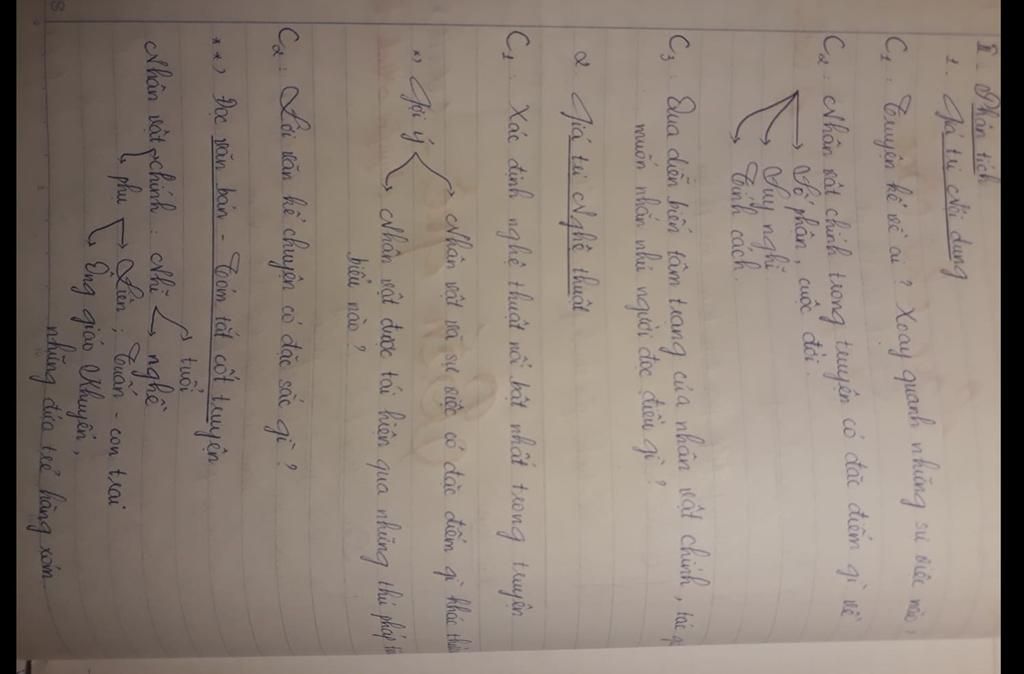 II. Phân tích
1. Giá trị Nội dung
C1: Truyện kể về ai? Xoay quanh những sự việc nào?
C2: Nhân vật chính trong truyện có đặc điểm gì về
→ Số phận, cuộc đời.
→ Suy nghĩ
→ Tính cách.
C3: Qua diễn biến tâm trạng của nhân vật chính, tác
muốn nhắn nhủ người đọc điều gì?
2. Giá trị Nghệ thuật
C1: Xác định nghệ thuật nổi bật nhất trong truyện
*) Gợi ý → Nhân vật và sự việc có đặc điểm gì khác
→ Nhân vật được tái hiện qua những thủ pháp
biểu nào?
C2: Lời văn kể chuyện có đặc sắc gì?
**) Đọc văn bản - Tóm tắt cốt truyện
Nhân vật chính: Nhĩ → tuổi
→ nghề
→ phụ → Liên; Tuấn - con trai
→ Ông giáo Khuyến,
những đứa trẻ hàng xóm